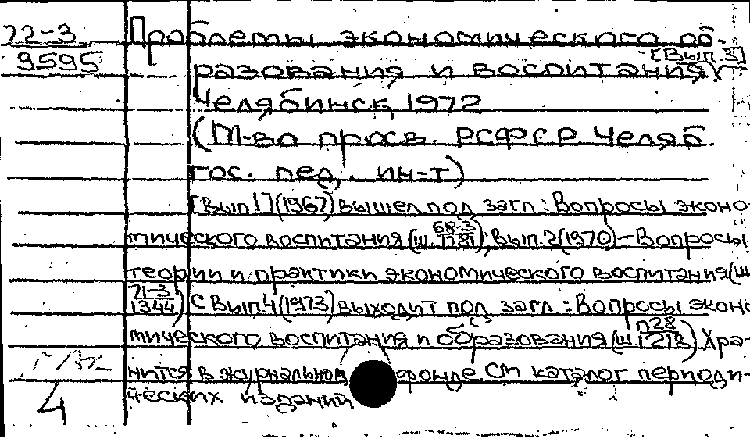 72-3
9595
Проблемы экономического об-
[Вып. 3]
разования и воспитания
Челябинск, 1972
(М-во просв. РСФСР. Челяб.
гос. пед. ин-т)
[Вып 1] (1967) вышел под загл.: Вопросы эконо-
мического воспитания (ш. 68-3), Вып. 2 (1970) – Вопросы
теории и практики экономического воспитания (ш
71-3
1344) С Вып. 4 (1973) выходит под загл.: Вопросы эконо
мического воспитания и образования (ш П28
1218) Хра-
нится в журнальном фонде. См каталог периоди-
ческих изданий
4